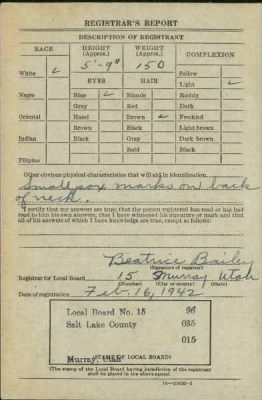 REGISTRAR'S REPORT
DESCRIPTION OF REGISTRANT
RACE HEIGHT (Approx.) WEIGHT (Approx.) COMPLEXION
5'-9" 150
White ✓ Sallow
EYES HAIR Light ✓
Negro Blue ✓ Blonde Ruddy
Gray Red Dark
Oriental Hazel Brown ✓ Freckled
Brown Black Light brown
Indian Black Gray Dark brown
Bald Black
Filipino
Other obvious physical characteristics that will aid in identification
Small pox marks on back
of neck.
I certify that my answers are true; that the person registered has read or has had
read to him his own answers; that I have witnessed his signature or mark and that
all of his answers of which I have knowledge are true, except as follows:
Beatrice Bailey
(Signature of registrar)
Registrar for Local Board 15 Murray Utah
(Number) (City or county) (State)
Date of registration Feb. 16, 1942
Local Board No. 15 96
Salt Lake County 035
015
Murray, Utah
(STAMP OF LOCAL BOARD)
(The stamp of the Local Board having jurisdiction of the registrant
shall be placed in the above space)